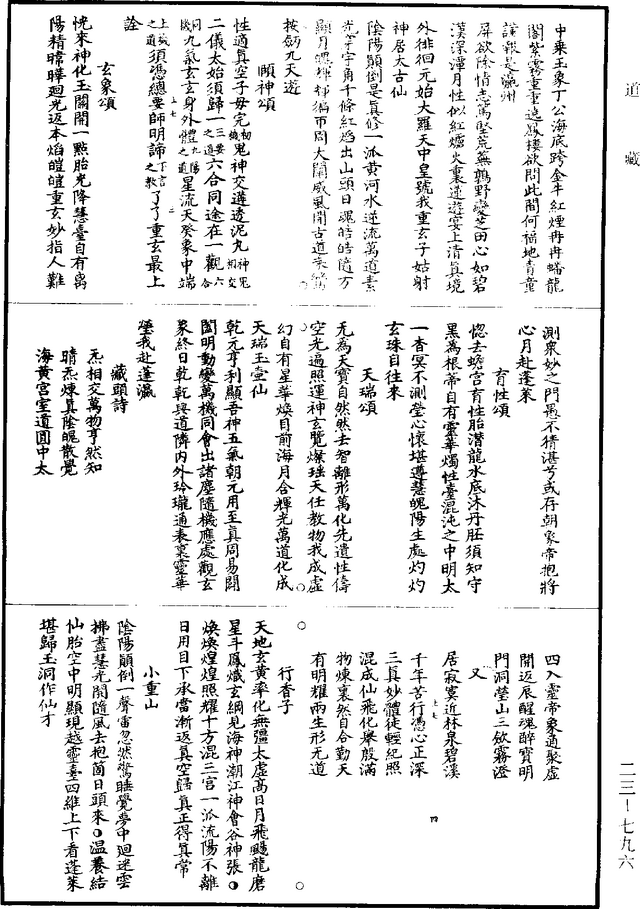 道藏
中乘玉象丁公海底跨金牛紅煙冉冉蟠龍
閣紫霧重重遶鳳樓欲問此間何福地青童
謹報是瀛州
屏欲除情志萬堅荒蕪鵝野變芝田心如碧
漢深潭月性似紅爐火裏蓮遊宴上清真境
外徘徊元始大羅天中皇號我重玄子姑射
神居太古仙
陰陽顛倒是真修一派黃河水逆流萬道素
光穿宇角千條紅焰出山頭日魂皓皓隨方
顯月魄輝輝徧市周大闡威風開古道
按劒九天遊
頤神頌
性適真空子毋完鬼神交遘透泥丸
二儀太始須歸一六合同途在一觀
九氣玄玄身外體星流天癸象中端
須憑總要師明諦了了重玄最上
詮
玄象頌
恍來神化玉關開一點胎光降慧臺自有离
陽精暐曄迴光返本焰皚皚重玄妙指人難
測衆妙之門愚不猜湛兮或存朝象帝抱將
心月赴蓬萊
育性頌
惚去蟾宮育性胎潛龍水底沐丹胚須知守
黑為根帝自有靈華燭性臺混沌之中明太
一杳冥不測瑩心懷堪遵慧魄陽生處灼灼
玄珠自往來
天瑞頌
无為天寶自然然去智離形萬化先遺性儔
空光遍照運神玄覽燦瑶天任教物我成虛
幻自有星華煥目前海月合輝光萬道化成
天瑞玉堂仙
乾元亨利顯吾神五氣朝元用至真周易闢
闔明動變萬機同會出諸塵隨機應處觀玄
象終日乾乾與道隣內外玲瓏通表裏靈華
瑩我赴蓬瀛
藏頭詩
炁相交萬物亨然知
晴炁煉真陰魄散覺
海黃宮室道圓中太
四入靈帝象通聚虛
開返辰醒魂醉寶明
門洞瑩山三歛霧澄
又
居寂寞近林泉碧溪
千年苦行憑心正深
三真妙體徒輕紀照
混成仙飛化舉殷滿
物煉裏然自合勤天
有明耀兩生形无道
行香子
天地玄黃率化無疆太虛高日月飛颺龍磨
星斗鳳熾玄綱見海神潮江神會谷神張●
煥煥煌煌照耀十方混三宮一派流陽不離
日用目下承當漸返真空歸真正得真常
小重山
陰陽顛倒一聲雷忽然驚睡覺夢中迴迷雲
拂盡慧光開隨風去抱箇日頭來●温養結
仙胎空中明顯現越靈臺四維上下看蓬萊
堪歸玉洞作仙才
二三—七九六